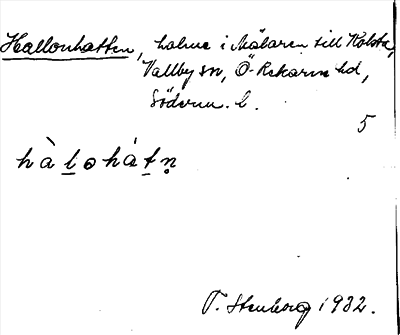 Hallonhatten, holme i Mälaren till Kolsta,
Vallby sn, Ö-Rekarne hd,
Söderm. l.
5
hàl̠ohát̠n̥
T. Stenborg 1932.